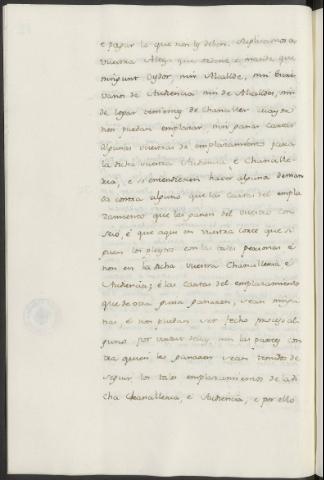 e pagar lo que non ly deben. Suplicamos a
vuestra Alteza que ordene e mande que
ningunt Oydor, nin Alcalde, nin Escri-
vanos de Audiencia nin de Alcaldes, nin
de logar teniente de Chanceller
non puedan emplazar, nin passar cartas
algunas vuestras de emplazamiento para
la dicha vuestra Audiencia e Chancille-
ria, e si entendieren haver alguna deman
da contra alguno que las cartas del empla
zamiento que las pasen del vuestro con
sejo, e que aqui en vuestra corte que si
guen los pleytos con las tales personas e
non en la dicha vuestra Chancilleria e
Audiencia; e las cartas del emplazamiento
que de otra guisa pasaren, sean ningu
nas, e non puedan ser fecho proceso al
guno por virtud dellas, nin las partes con
tra quien se pasaren sean tenudos de
seguir los tales emplazamientos de la di
cha Chancilleria, e Audiencia, e por ello